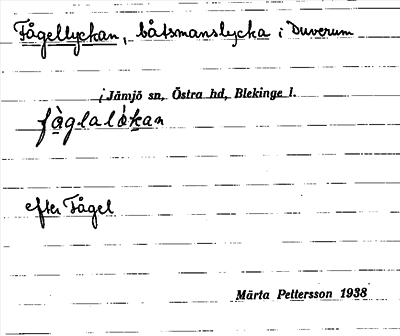 Fågellyckan, båtsmanslycka i Duverum
i Jämjö sn, Östra hd, Blekinge l.
fòglalókan
efter Fågel
Märta Pettersson 1938